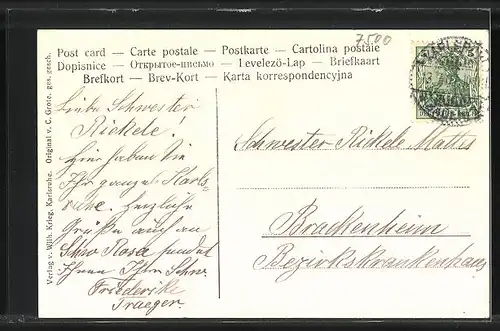 7500
Post card — Carte postale — Postkarte — Cartolina postale
Dopisnice — Открытое-письмо — Levelezö-Lap — Briefkaart
Brefkort — Brev-Kort — Karta korrespondencyjna
Liebe Schwester
Rickele!
Hier haben Sie
Ihr ganzes Karls-
ruhe. Herzliche
Grüße auch an
Schw Rosa sendet
Ihnen Ihre Schw.
Friederike
Traeger.
Schwester Rickele Mattes
Brackenheim
Bezirkskrankenhaus
Verlag v. Wilh. Krieg, Karlsruhe. Original v. C. Grote. ges. gesch.